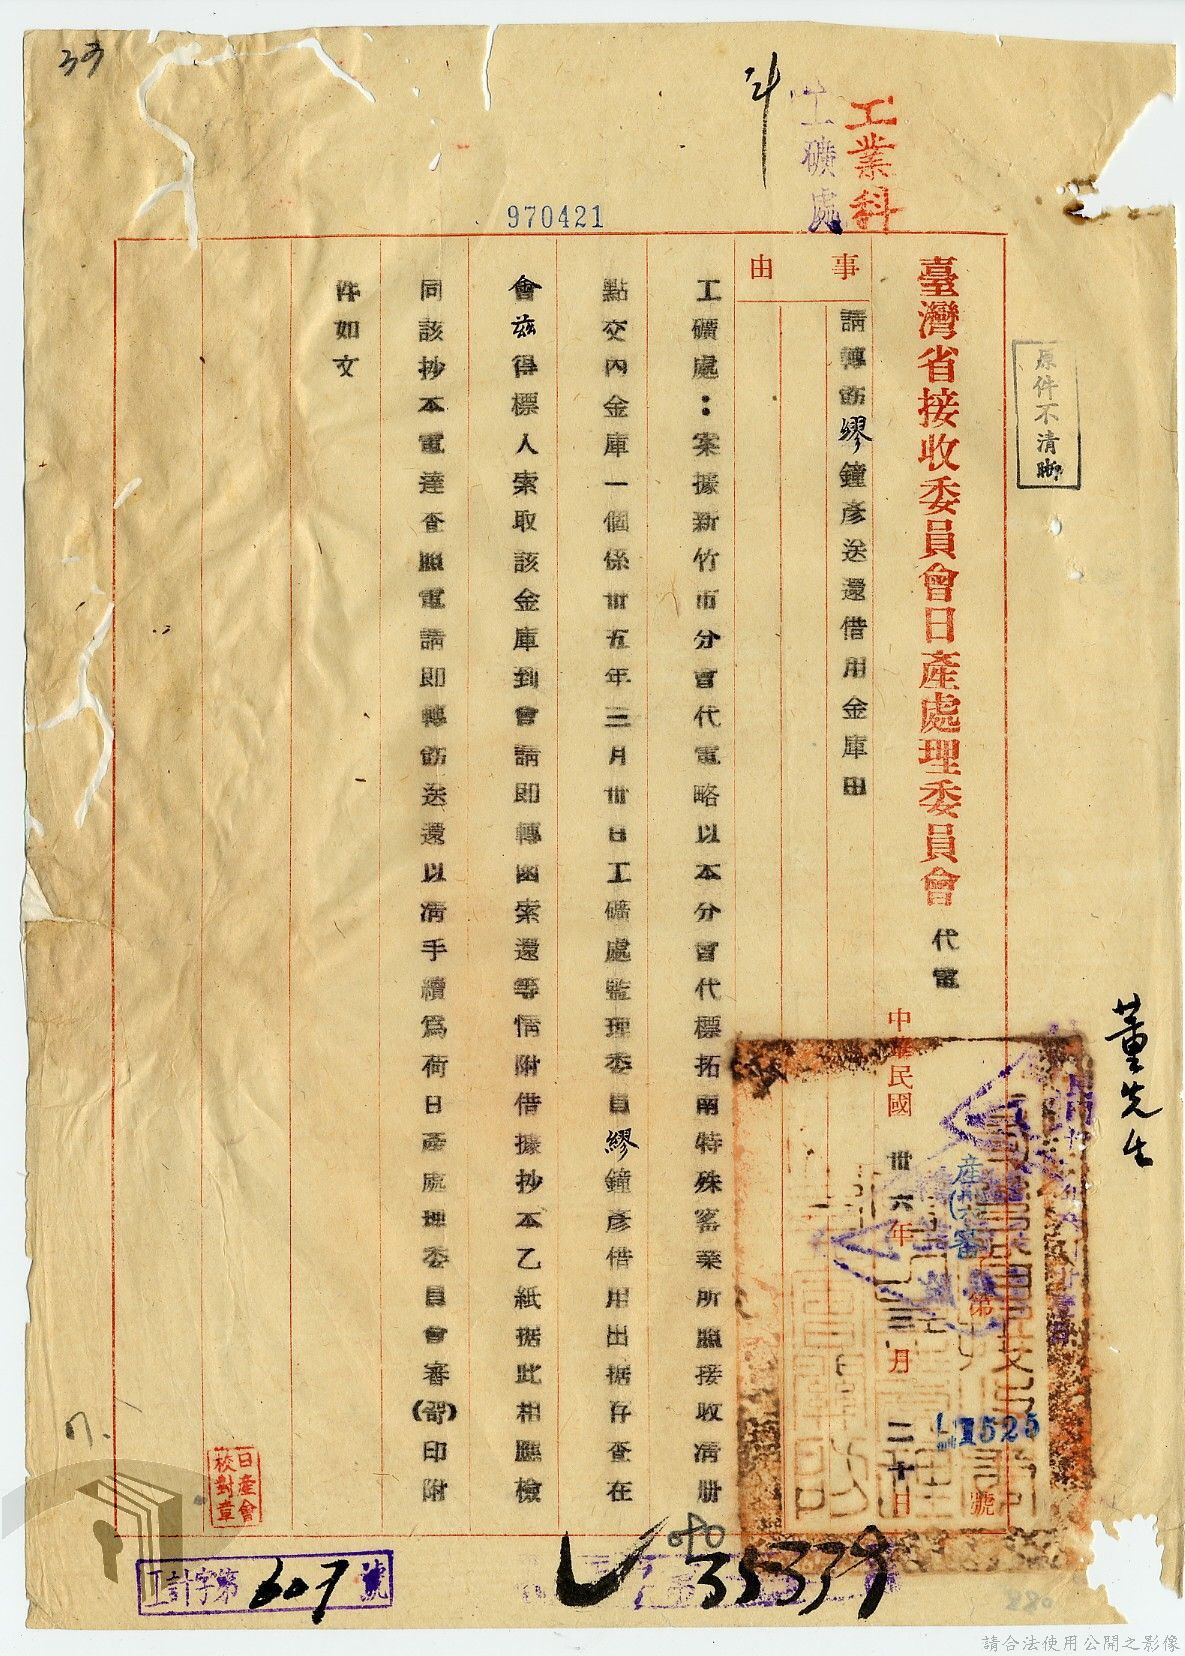 39
工業科
工礦處
970421
原件不清晰
董先生
臺灣省接收委員會日產處理委員會 代電
中華民國 卅六年 三月 二十日
產 審 第 11525 號
事由
請轉飭繆鐘彥送還借用金庫由
工礦處：案據新竹市分會代電略以本分會代標拓南特殊窰業所照接收清册
點交內金庫一個係卅五年三月卅日工礦處監理委員繆鐘彥借用出据存查在
會茲得標人索取該金庫到會請即轉函索還等情附借據抄本乙紙据此相應檢
同該抄本電達查照電請即轉飭送還以清手續爲荷日產處理委員會審(哿)印附
件如文
日產會校對章
工計字第607號
35339
請合法使用公開之影像